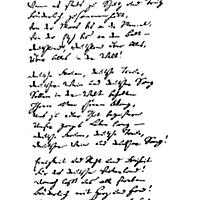 Wenn es stets zu Schutz und Trutze
Brüderlich zusammenhält,
Von der Maas bis an die Memel,
Von der Etsch bis an den Belt –
Deutschland, Deutschland über Alles,
Über Alles in der Welt!
Deutsche Frauen, deutsche Treue,
Deutscher Wein und deutscher Sang
Sollen in der Welt behalten
Ihren alten schönen Klang,
Uns zu edler That begeistern
Unser ganzes Leben lang –
Deutsche Frauen, deutsche Treue,
Deutscher Wein und deutscher Sang!
Einigkeit und Recht und Freiheit
Für das deutsche Vaterland!
Danach laßt uns alle streben
Brüderlich mit Herz und Hand!